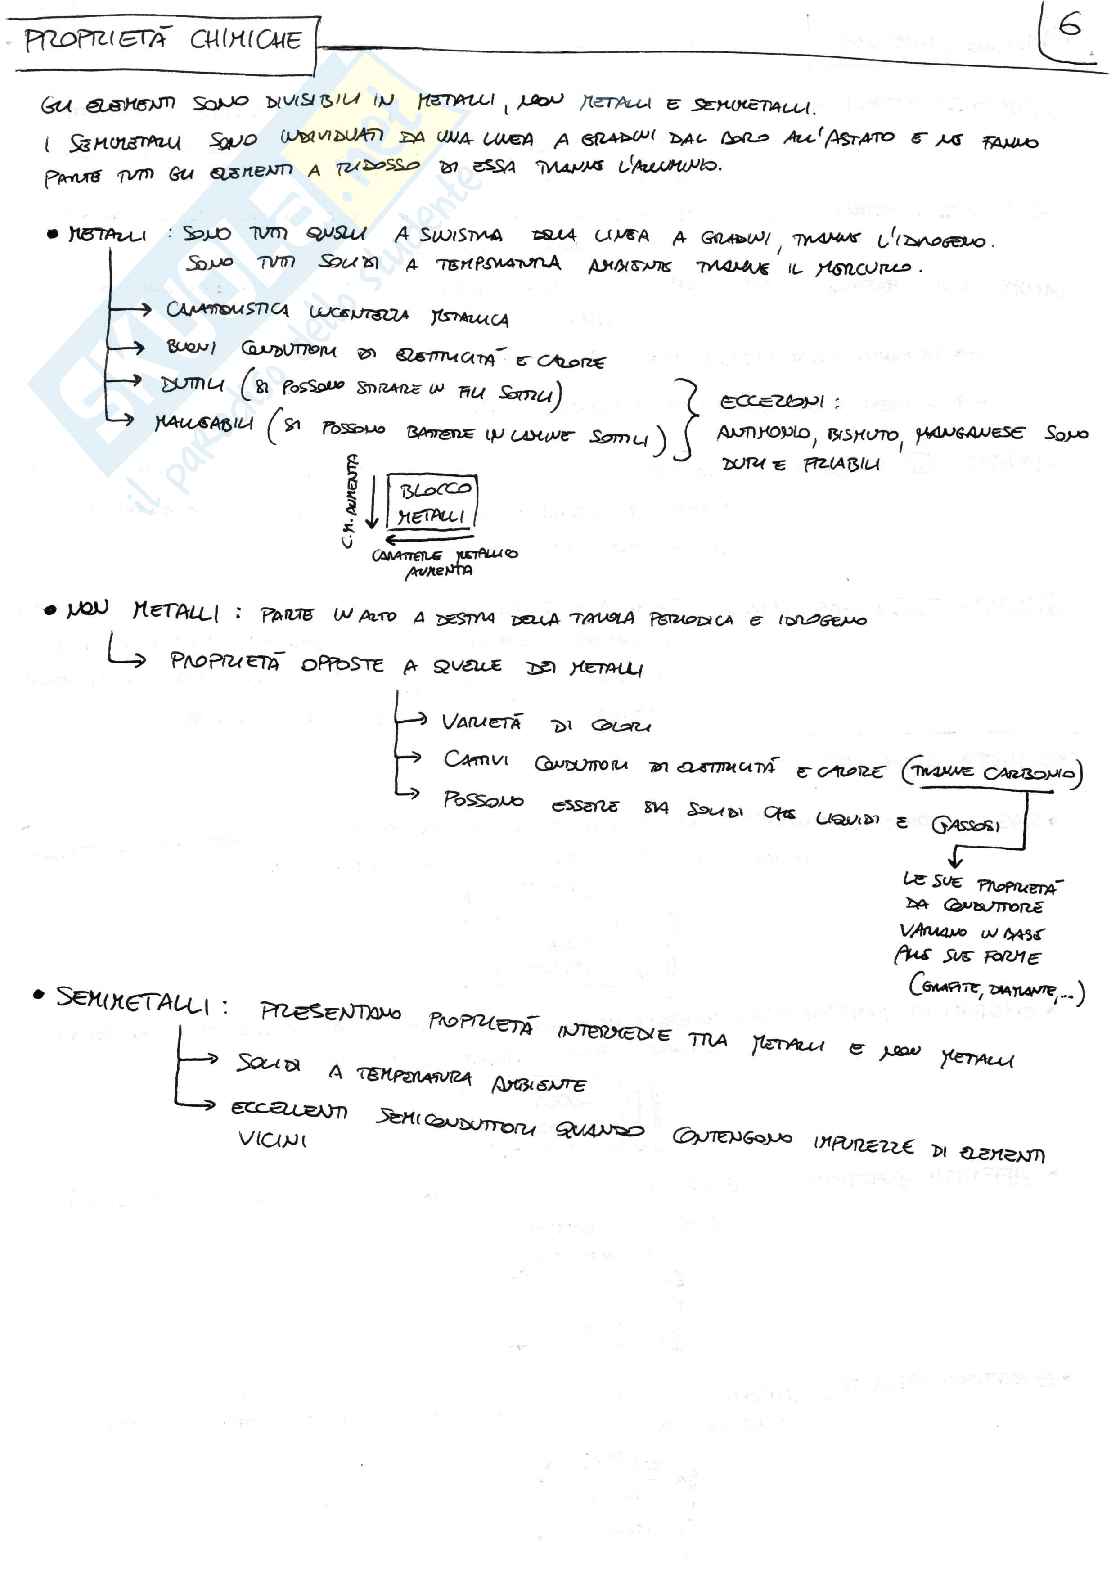 PROPRIETÀ CHIMICHE
6
GLI ELEMENTI SONO DIVISIBILI IN METALLI, NON METALLI E SEMIMETALLI.
I SEMIMETALLI SONO INDIVIDUATI DA UNA LINEA A GRADINI DAL BORO ALL'ASTATO E NE FANNO
PARTE TUTTI GLI ELEMENTI A RIDOSSO DI ESSA TRANNE L'ALLUMINIO.
• METALLI : SONO TUTTI QUELLI A SINISTRA DELLA LINEA A GRADINI, TRANNE L'IDROGENO.
SONO TUTTI SOLIDI A TEMPERATURA AMBIENTE TRANNE IL MERCURIO.
→ CARATTERISTICA LUCENTEZZA METALLICA
→ BUONI CONDUTTORI DI ELETTRICITÀ E CALORE
→ DUTTILI (SI POSSONO STIRARE IN FILI SOTTILI)
→ MALLEABILI (SI POSSONO BATTERE IN LAMINE SOTTILI)
ECCEZIONI :
ANTIMONIO, BISMUTO, MANGANESE SONO
DURI E FRIABILI
C.M. AUMENTA
BLOCCO
METALLI
CARATTERE METALLICO
AUMENTA
• NON METALLI : PARTE IN ALTO A DESTRA DELLA TAVOLA PERIODICA E IDROGENO
→ PROPRIETÀ OPPOSTE A QUELLE DEI METALLI
→ VARIETÀ DI COLORI
→ CATTIVI CONDUTTORI DI ELETTRICITÀ E CALORE (TRANNE CARBONIO)
→ POSSONO ESSERE SIA SOLIDI CHE LIQUIDI E GASSOSI
LE SUE PROPRIETÀ
DA CONDUTTORE
VARIANO IN BASE
ALLE SUE FORME
(GRAFITE, DIAMANTE,...)
• SEMIMETALLI : PRESENTANO PROPRIETÀ INTERMEDIE TRA METALLI E NON METALLI
→ SOLIDI A TEMPERATURA AMBIENTE
→ ECCELLENTI SEMICONDUTTORI QUANDO CONTENGONO IMPUREZZE DI ELEMENTI
VICINI
SKUOLA.net
il paradiso dello studente